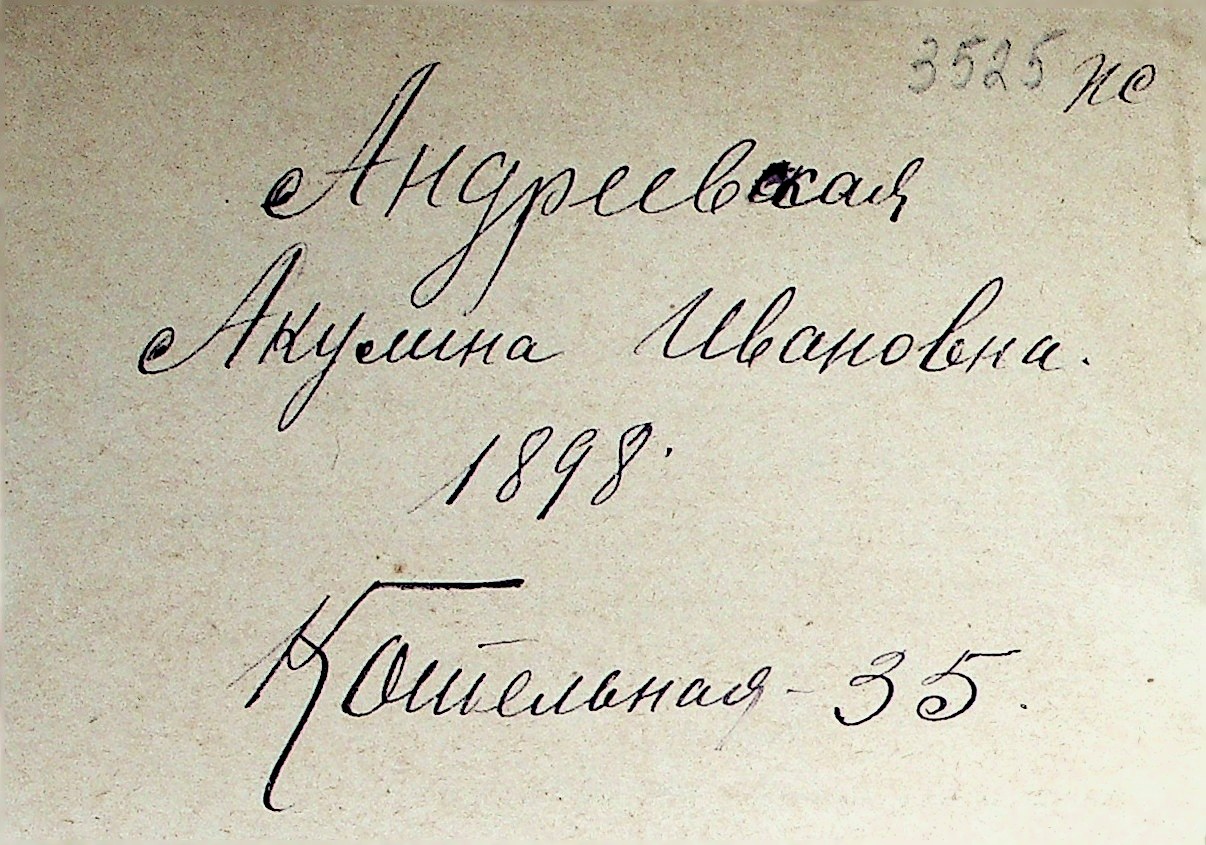 3525 пс
Андреевская
Акулина Ивановна.
1898.
Котельная - 35.